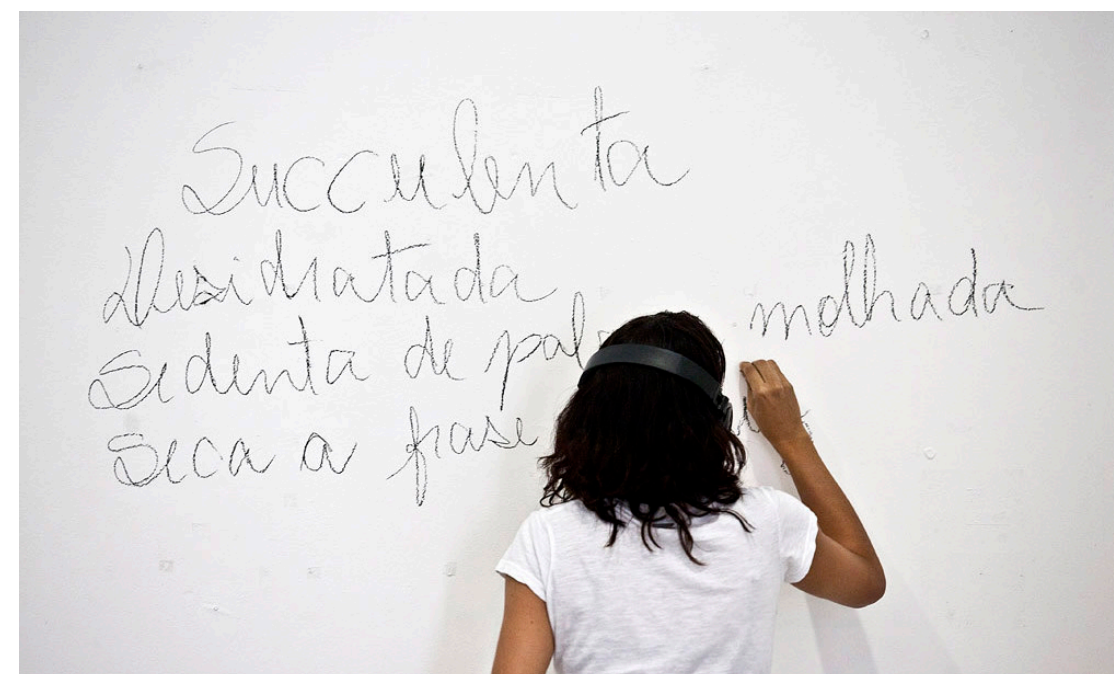 Succulenta
Desidratada
sedenta de molhada
seca a frase